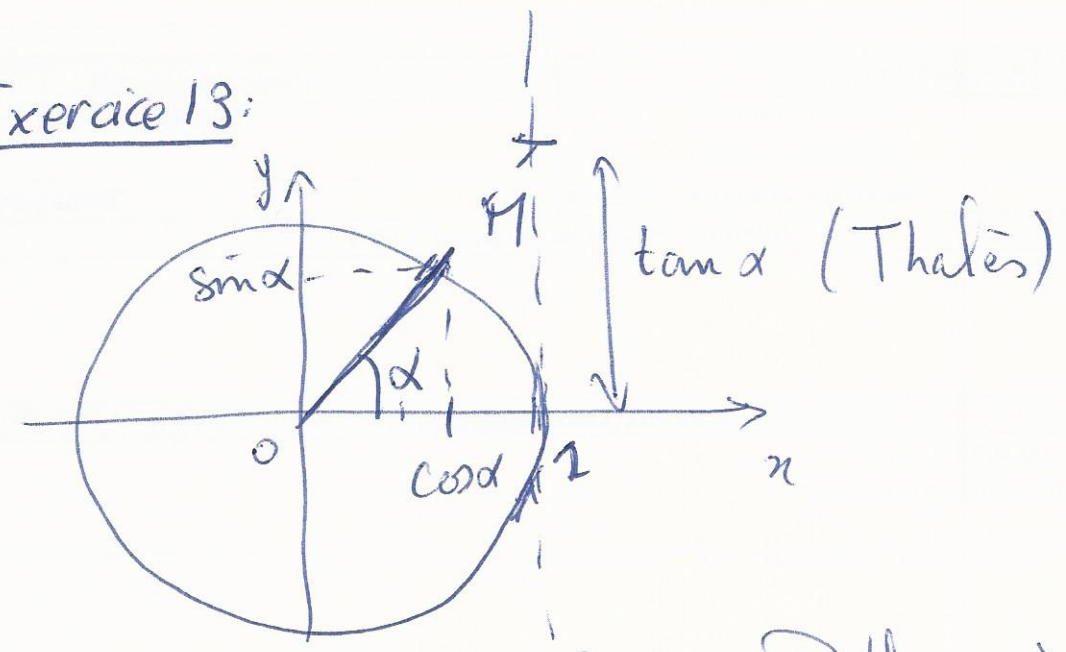 Exercice 13:
y
M
sin α
tan α (Thalès)
α
O
cos α
1
x